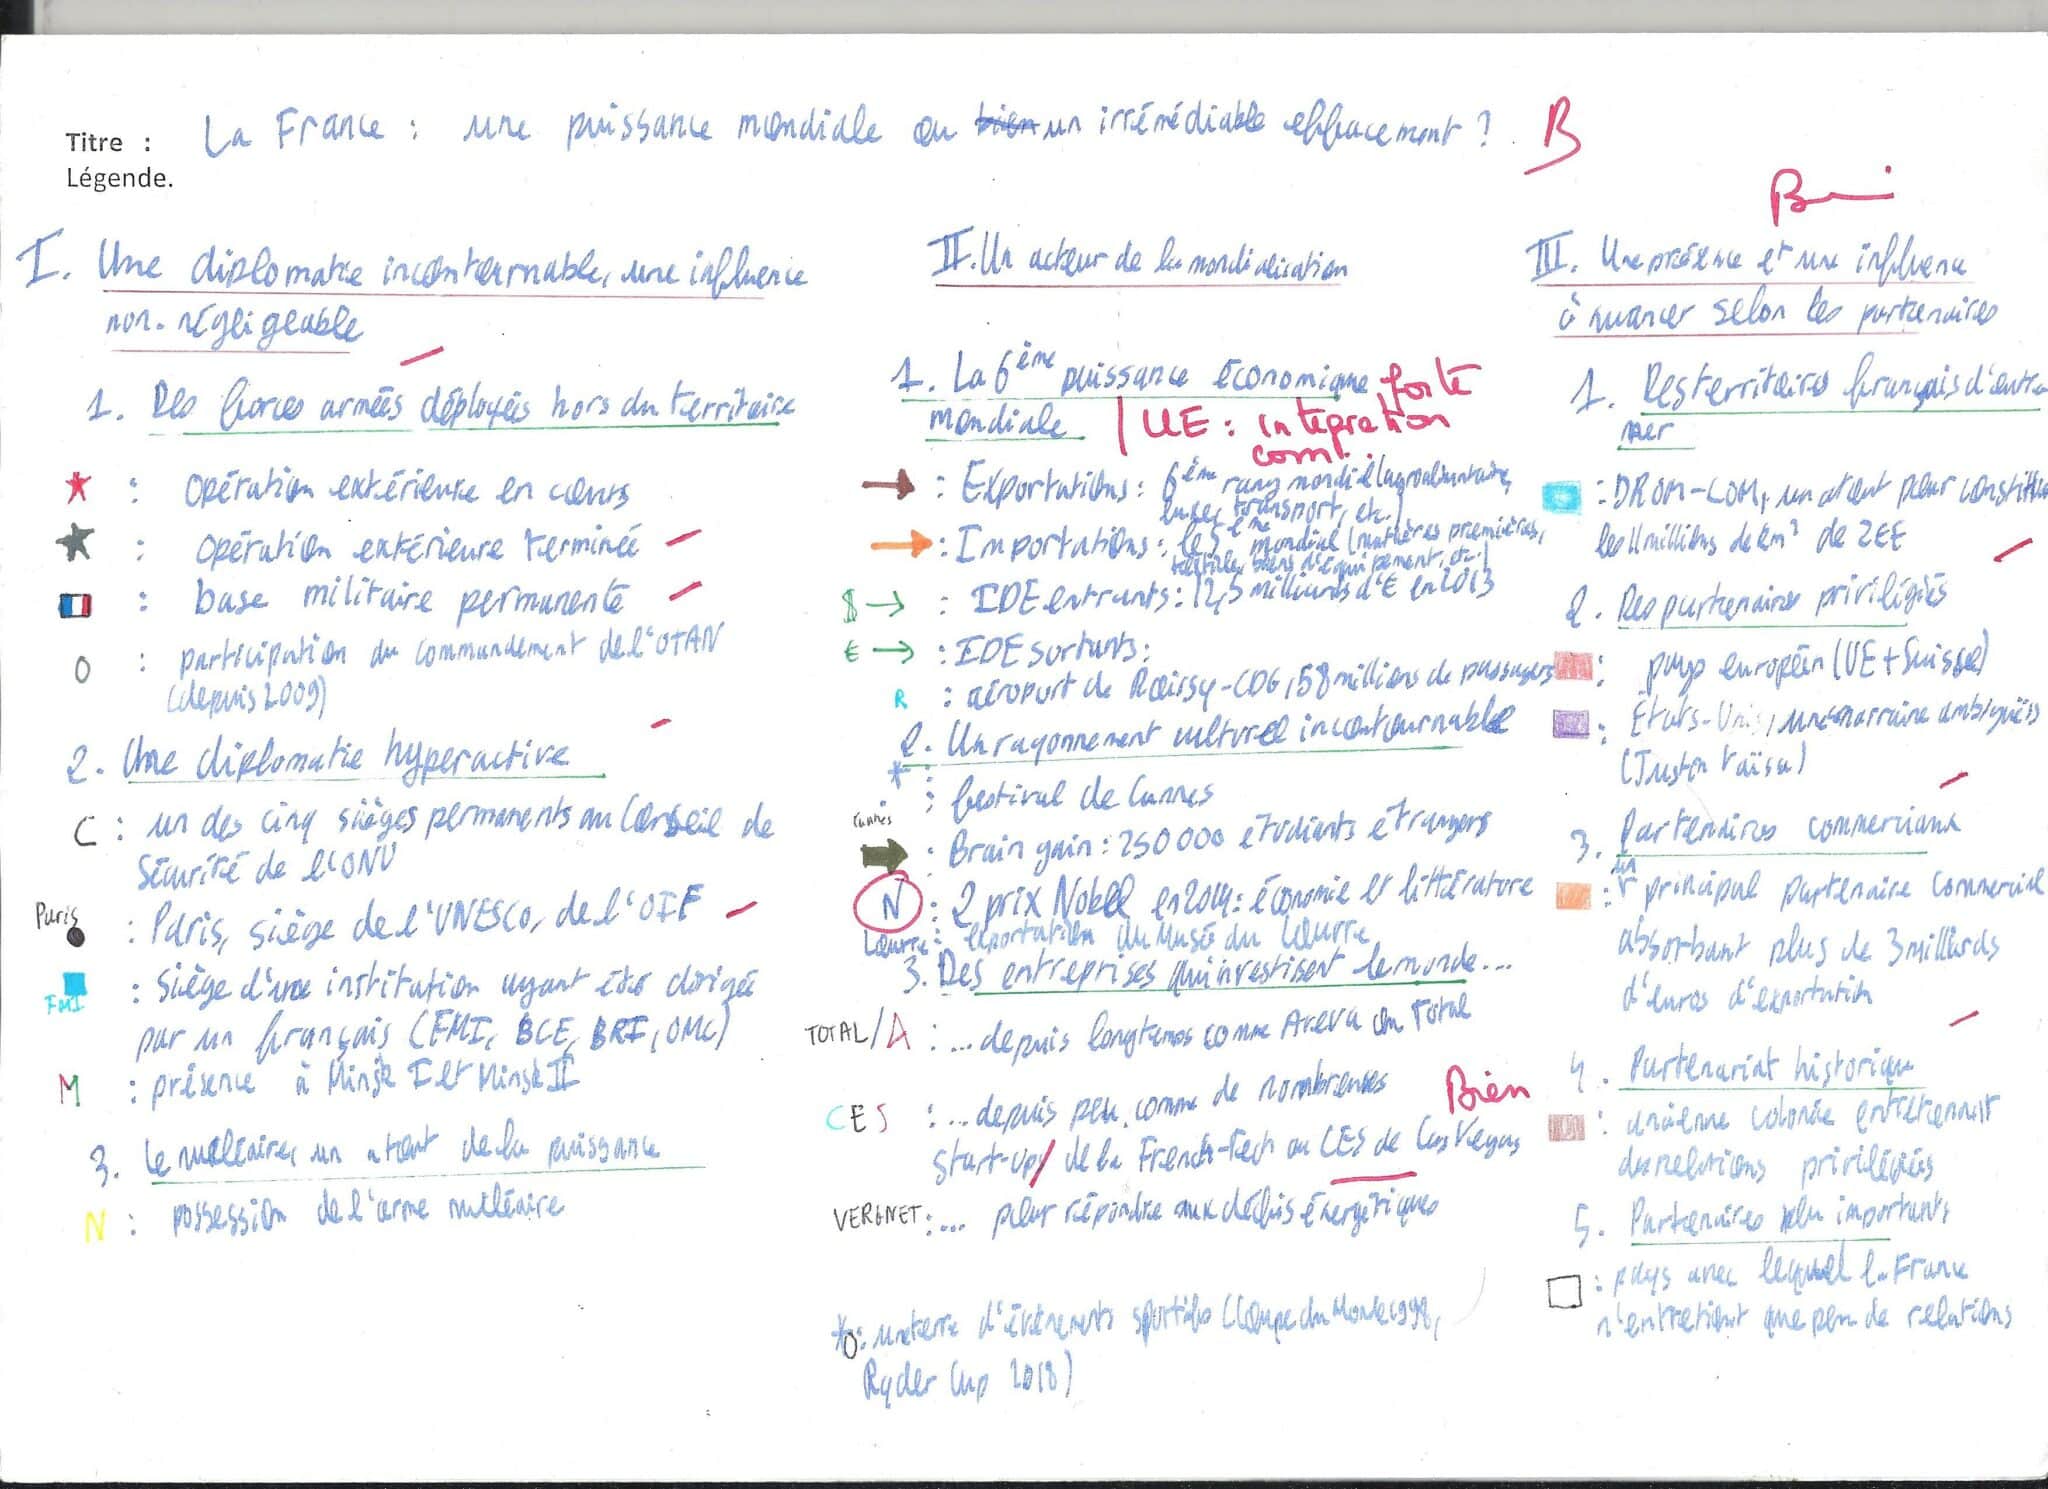 Titre :
La France : une puissance mondiale ou bien un irrémédiable effacement ? B
Légende.
B
I. Une diplomatie incontournable, une influence
non-négligeable
1. Des forces armées déployés hors du territoire
: opération extérieure en cours
: opération extérieure terminée
: base militaire permanente
O : participation au commandement de l'OTAN
(depuis 2009)
2. Une diplomatie hyperactive
C : un des cinq sièges permanents au Conseil de
Sécurité de l'ONU
Paris : Paris, siège de l'UNESCO, de l'OIF
FMI : siège d'une institution ayant été dirigée
par un français (FMI, BCE, BRI, OMC)
M : présence à Minsk I et Minsk II
3. Le nucléaire, un atout de la puissance
N : possession de l'arme nucléaire
II. Un acteur de la mondialisation
1. La 6ème puissance économique
mondiale
| UE : forte intégration
com.
: Exportations : 6ème rang mondial (agroalimentaire,
luxe, transport, etc.)
: Importations : le 5ème mondial (matières premières,
textile, biens d'équipement, etc.)
$ → : IDE entrants : 12,5 milliards d'€ en 2013
€ → : IDE sortants :
R : aéroport de Roissy-CDG, 58 millions de passagers
2. Un rayonnement culturel incontournable
*
Cannes : festival de Cannes
: Brain gain : 250 000 étudiants étrangers
N : 2 prix Nobel en 2014 : économie et littérature
Louvre : exportation du Musée du Louvre
3. Des entreprises qui investisent le monde...
TOTAL/A : ... depuis longtemps comme Areva ou Total
CES : ... depuis peu, comme de nombreuses
Bien
start-up de la French-Tech au CES de Las Vegas
VERGNET : ... pour répondre aux défis énergétiques
*O : une terre d'événements sportifs (Coupe du Monde 1998,
Ryder Cup 2018)
III. Une présence et une influence
à nuancer selon les partenaires
1. Des territoires français d'outre
mer
: DROM-COM, un atout pour constituer
les 11 millions de km² de ZEE
2. Des partenaires priviligiés
: pays européin (UE + Suisse)
: États-Unis, une narraine ambiguës
(Justin Vaïsse)
3. Partenaires commerciaux
: un principal partenaire commercial
absorbant plus de 3 milliards
d'euros d'exportation
4. Partenariat historique
: ancienne colonie entretenant
des relations priviligiés
5. Partenaires importants
: pays avec lequel la France
n'entretient que peu de relations